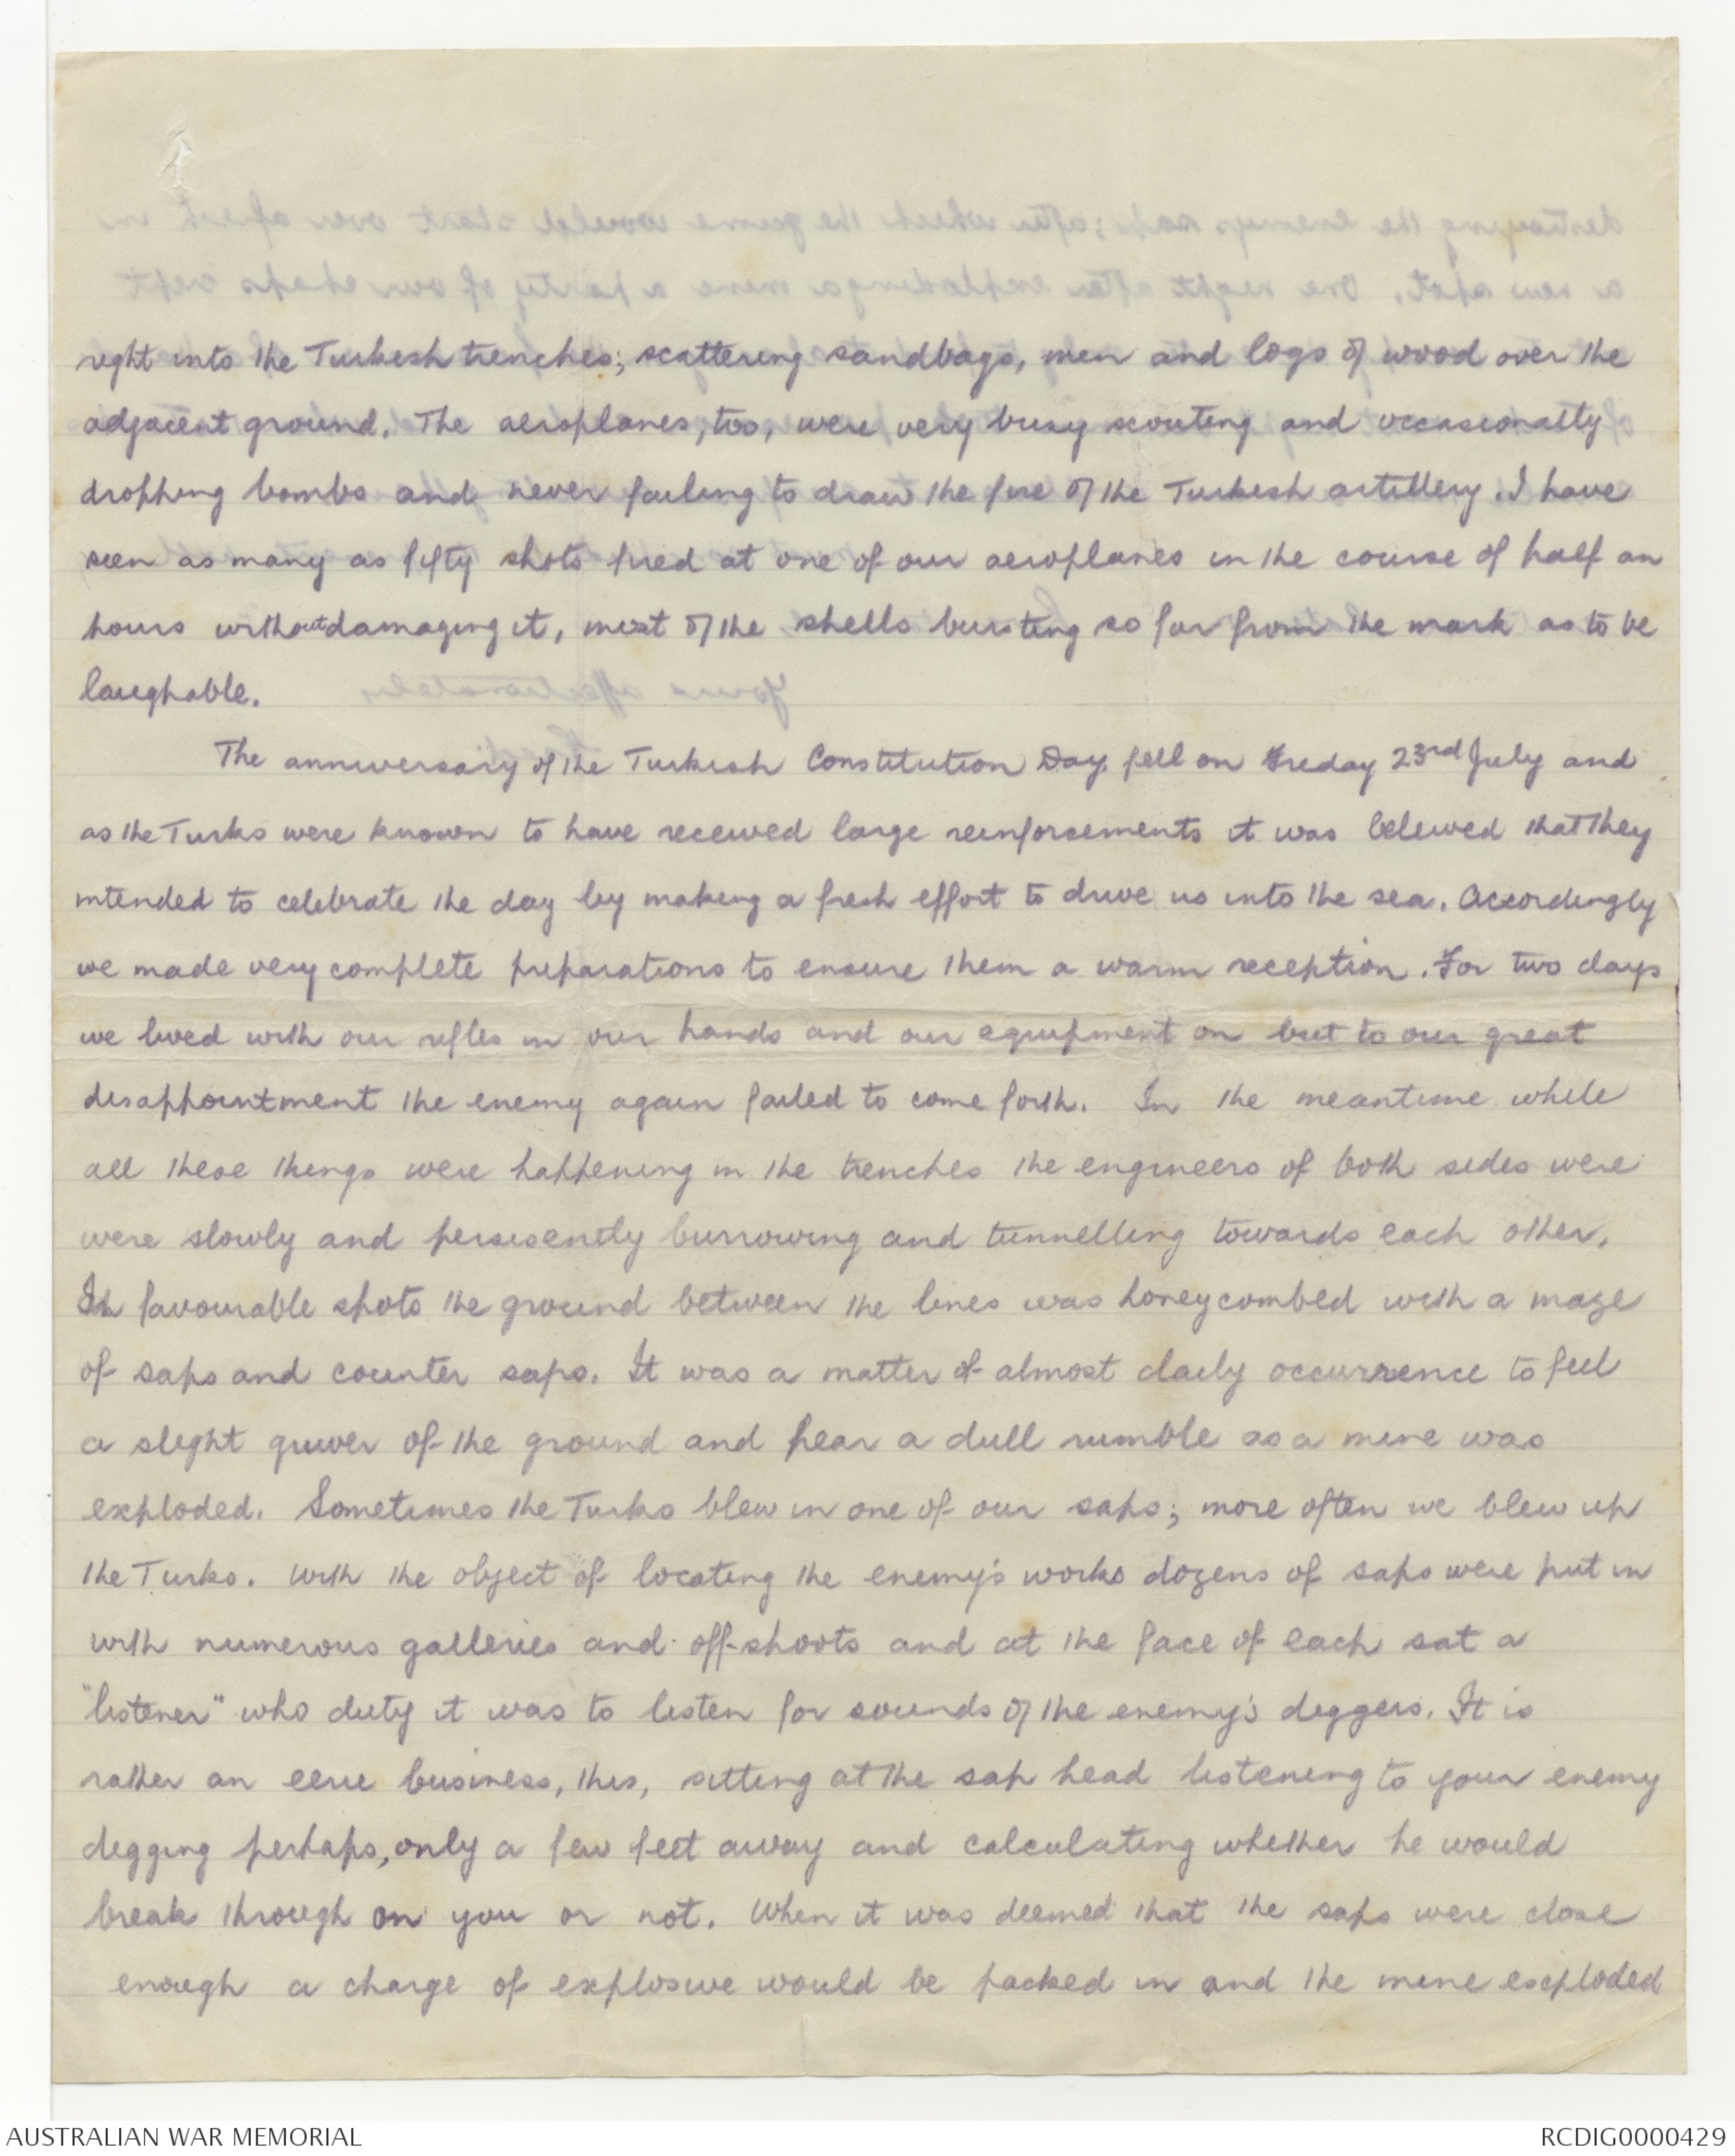 right into the Turkish trenches; scattering sandbags, men and logs of wood over the
adjacent ground. The aeroplanes, too, were very busy scouting and occasionally
dropping bombs and never failing to draw the fire of the Turkish artillery. I have
seen as many as fifty shots fired at one of our aeroplanes in the course of half an
hours without damaging it, most of the shells bursting so far from the mark as to be
laughable.
The anniversary of the Turkish Constitution Day, fell on Friday 23rd July and
as the Turks were known to have received large reinforcements it was believed that they
intended to celebrate the day by making a fresh effort to drive us into the sea. Accordingly
we made very complete preparations to ensure them a warm reception. For two days
we lived with our rifles in our hands and our equipment on but to our great
disappointment the enemy again failed to come forth. In the meantime while
all these things were happening in the trenches the engineers of both sides were
were slowly and persisently burrowing and tunnelling towards each other.
In favourable spots the ground between the lines was honeycombed with a maze
of saps and counter saps. It was a matter of almost daily occurrence to feel
a slight quiver of the ground and hear a dull rumble as a mine was
exploded. Sometimes the Turks blew in one of our saps; more often we blew up
the Turks. With the object of locating the enemy's works dozens of saps were put in
with numerous galleries and off-shoots and at the face of each sat a
"listener" who duty it was to listen for sounds of the enemy's diggers. It is
rather an eerie business, this, sitting at the sap head listening to your enemy
digging perhaps, only a few feet away and calculating whether he would
break through on you or not. When it was deemed that the saps were close
enough a charge of explosive would be packed in and the mine exploded
AUSTRALIAN WAR MEMORIAL
RCDIG0000429